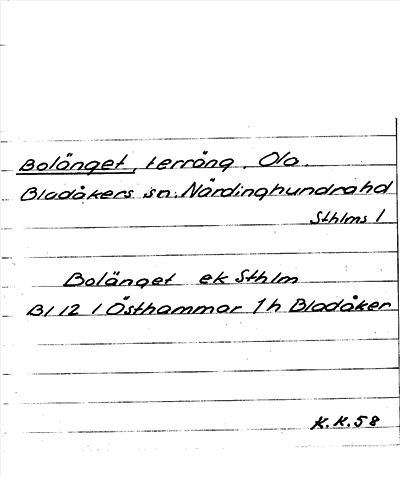 Bolänget, terräng. Ola.
Bladåkers sn. Närdinghundra hd
Sthlms l
Bolänget ek Sthlm
Bl 12 l Östhammar 1 h Bladåker
K.K.58